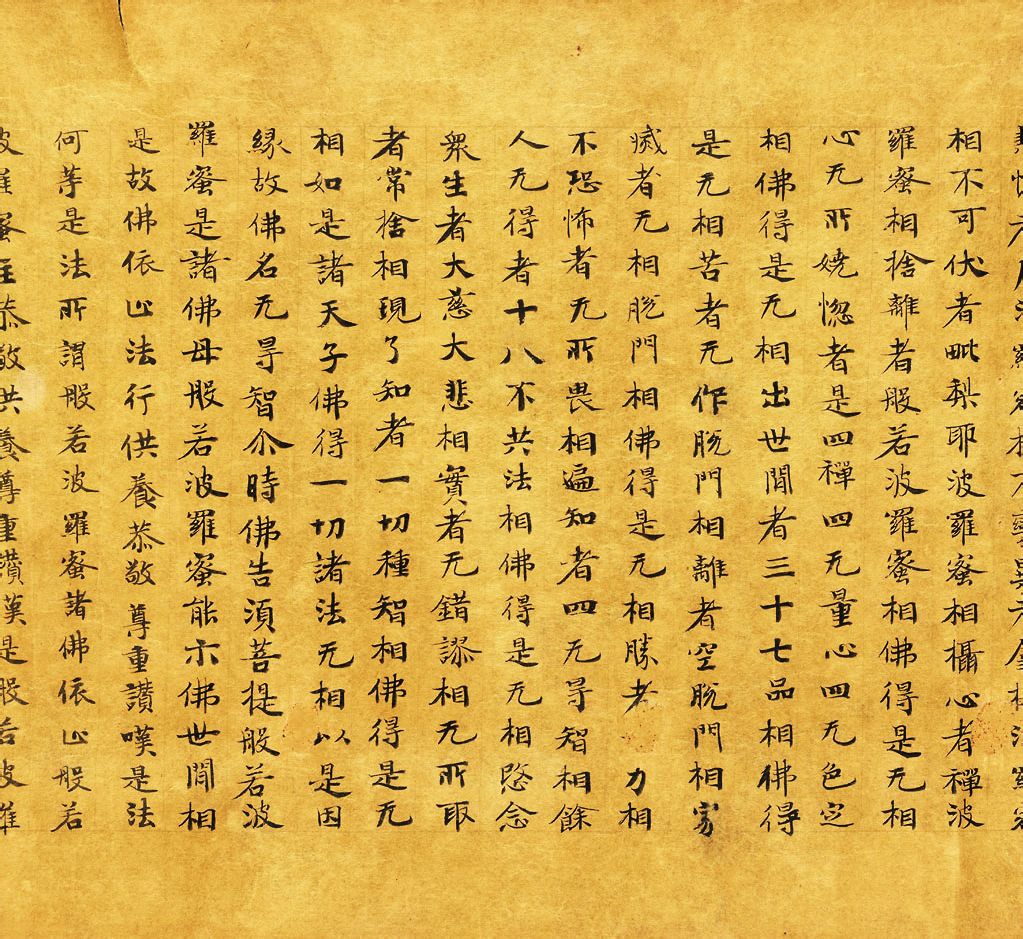 相不可伏者毗梨耶波羅蜜相攝心者禪波
羅蜜相捨離者般若波羅蜜相佛得是无相
心无所嬈惱者是四禪四无量心四无色定
相佛得是无相出世間者三十七品相佛得
是无相苦者无作脫門相離者空脫門相寂
滅者无相脫門相佛得是无相勝者力相
不恐怖者无所畏相遍知者四无㝵智相餘
人无得者十八不共法相佛得是无相愍念
衆生者大慈大悲相實者无錯謬相无所取
者常捨相現了知者一切種智相佛得是无
相如是諸天子佛得一切諸法无相以是因
緣故佛名无㝵智尒時佛告須菩提般若波
羅蜜是諸佛母般若波羅蜜能示佛世間相
是故佛依止法行供養恭敬尊重讚嘆是法
何等是法所謂般若波羅蜜諸佛依止般若
波羅蜜住恭敬供養尊重讚嘆是般若波羅